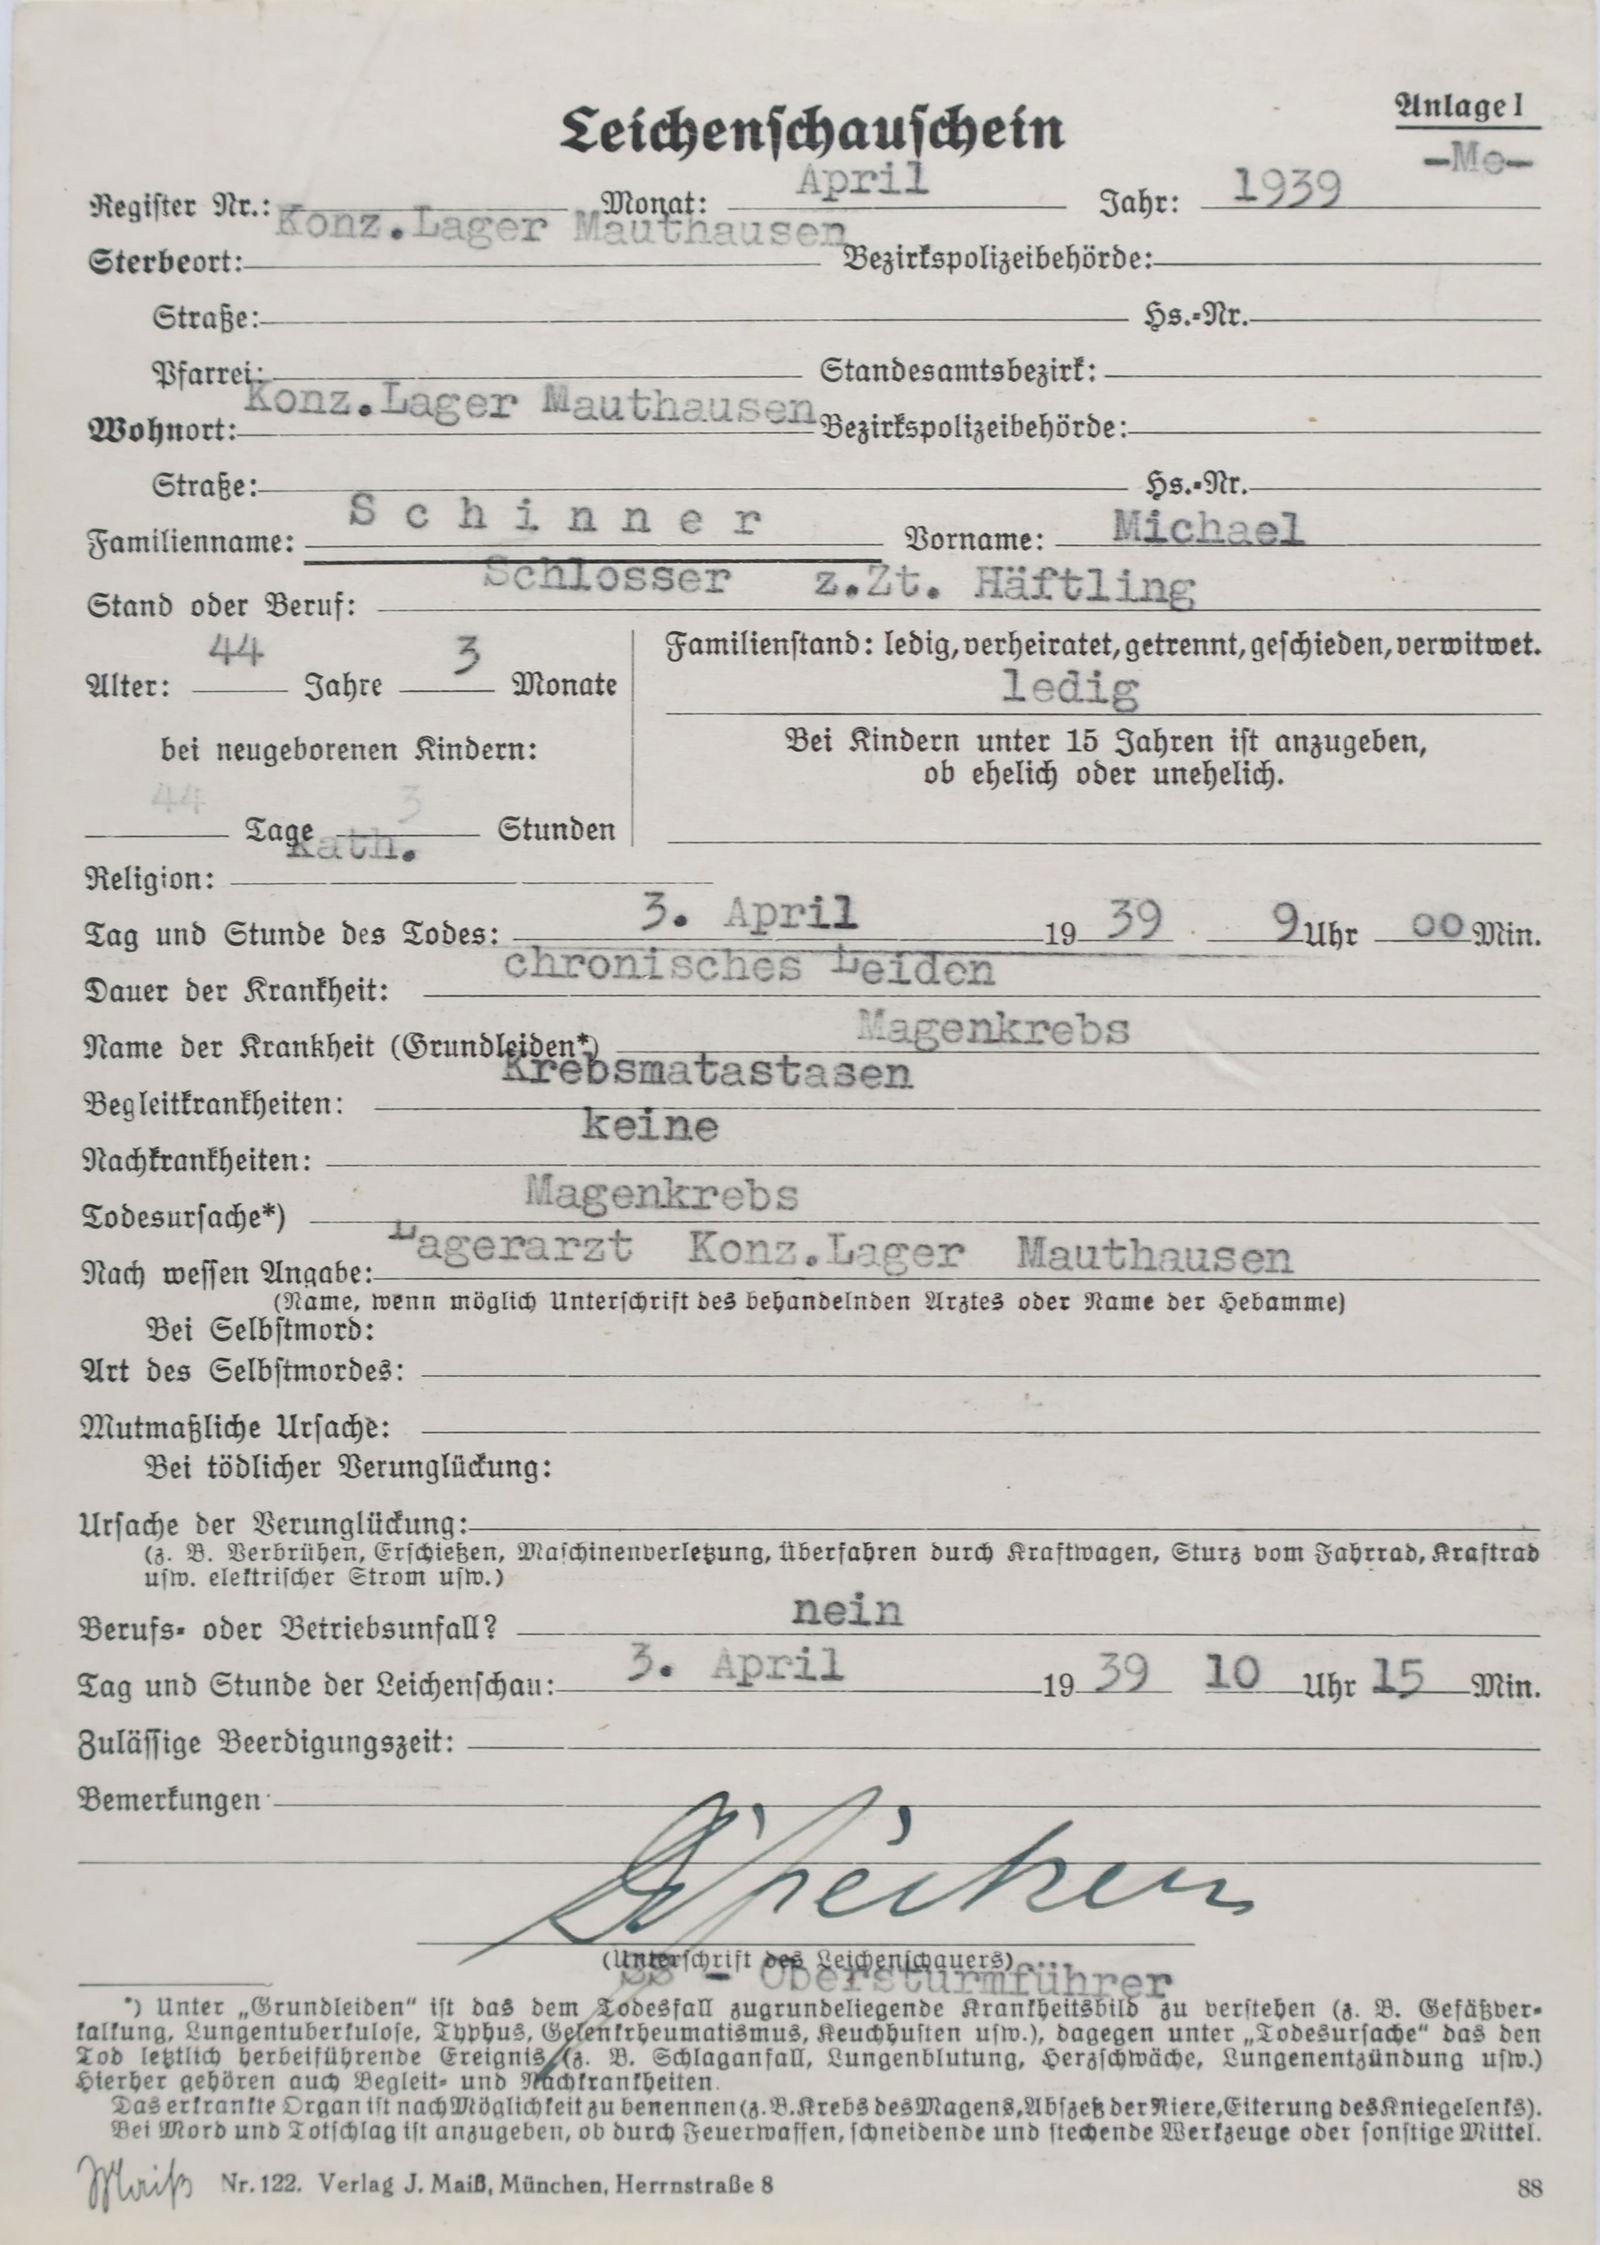 Leichenschauschein
Anlage I
-Me-
Register Nr.: Monat: April Jahr: 1939
Sterbeort: Konz.Lager Mauthausen Bezirkspolizeibehörde:
Straße: Hs.-Nr.
Pfarrei: Standesamtsbezirk:
Wohnort: Konz.Lager Mauthausen Bezirkspolizeibehörde:
Straße: Hs.-Nr.
Familienname: Schinner Vorname: Michael
Stand oder Beruf: Schlosser z.Zt. Häftling
Alter: 44 Jahre 3 Monate
Familienstand: ledig, verheiratet, getrennt, geschieden, verwitwet.
ledig
bei neugeborenen Kindern:
Bei Kindern unter 15 Jahren ist anzugeben,
ob ehelich oder unehelich.
44 3
Tage Stunden
Religion: Kath.
Tag und Stunde des Todes: 3. April 19 39 9 Uhr 00 Min.
Dauer der Krankheit: chronisches Leiden
Name der Krankheit (Grundleiden*) Magenkrebs
Begleitkrankheiten: Krebsmatastasen
Nachkrankheiten: keine
Todesursache*) Magenkrebs
Nach wessen Angabe: Lagerarzt Konz.Lager Mauthausen
(Name, wenn möglich Unterschrift des behandelnden Arztes oder Name der Hebamme)
Bei Selbstmord:
Art des Selbstmordes:
Mutmaßliche Ursache:
Bei tödlicher Verunglückung:
Ursache der Verunglückung:
(z. B. Verbrühen, Erschießen, Maschinenverletzung, Überfahren durch Kraftwagen, Sturz vom Fahrrad, Kraftrad
usw. elektrischer Strom usw.)
Berufs- oder Betriebsunfall? nein
Tag und Stunde der Leichenschau: 3. April 19 39 10 Uhr 15 Min.
Zulässige Beerdigungszeit:
Bemerkungen
(Unterschrift des Leichenschauers)
SS - Obersturmführer
*) Unter „Grundleiden“ ist das dem Todesfall zugrundeliegende Krankheitsbild zu verstehen (z. B. Gefäßver-
kalkung, Lungentuberkulose, Typhus, Gelenkrheumatismus, Keuchhusten usw.), dagegen unter „Todesursache“ das den
Tod letztlich herbeiführende Ereignis (z. B. Schlaganfall, Lungenblutung, Herzschwäche, Lungenentzündung usw.)
Hierher gehören auch Begleit- und Nachkrankheiten.
Das erkrankte Organ ist nach Möglichkeit zu benennen (z. B. Krebs des Magens, Abszeß der Niere, Eiterung des Kniegelenks).
Bei Mord und Totschlag ist anzugeben, ob durch Feuerwaffen, schneidende und stechende Werkzeuge oder sonstige Mittel.
Maiß Nr. 122. Verlag J. Maiß, München, Herrnstraße 8
88